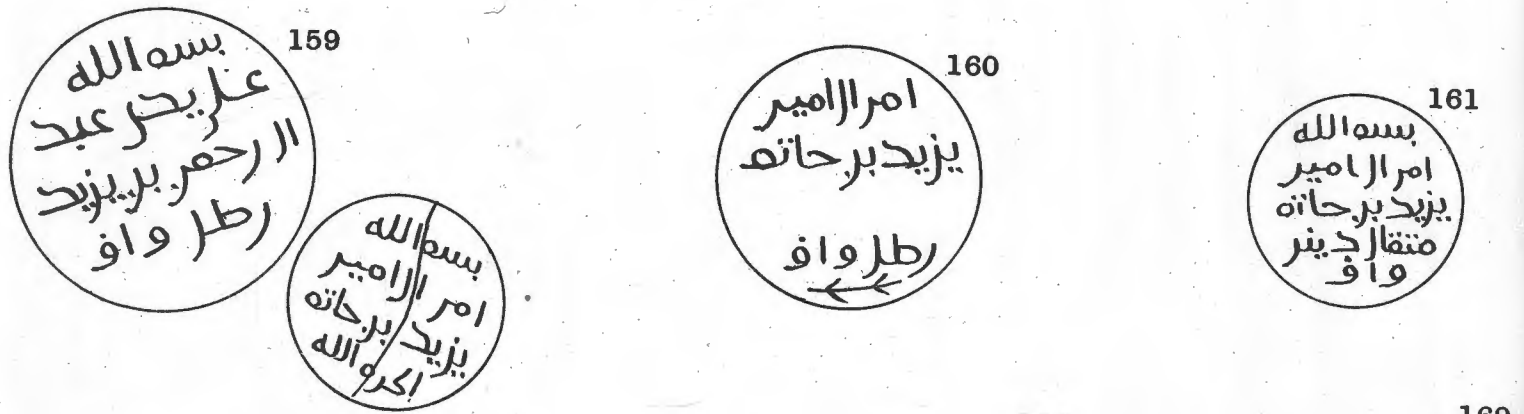 159
بسم الله
على يدى عبد
الرحمن بن يزيد
رطل واف
بسم الله
امر الامير
يزيد بن حاتم
اكرمه الله
160
امر الامير
يزيد بن حاتم
رطل واف
161
بسم الله
امر الامير
يزيد بن حاتم
مثقال دينر
واف